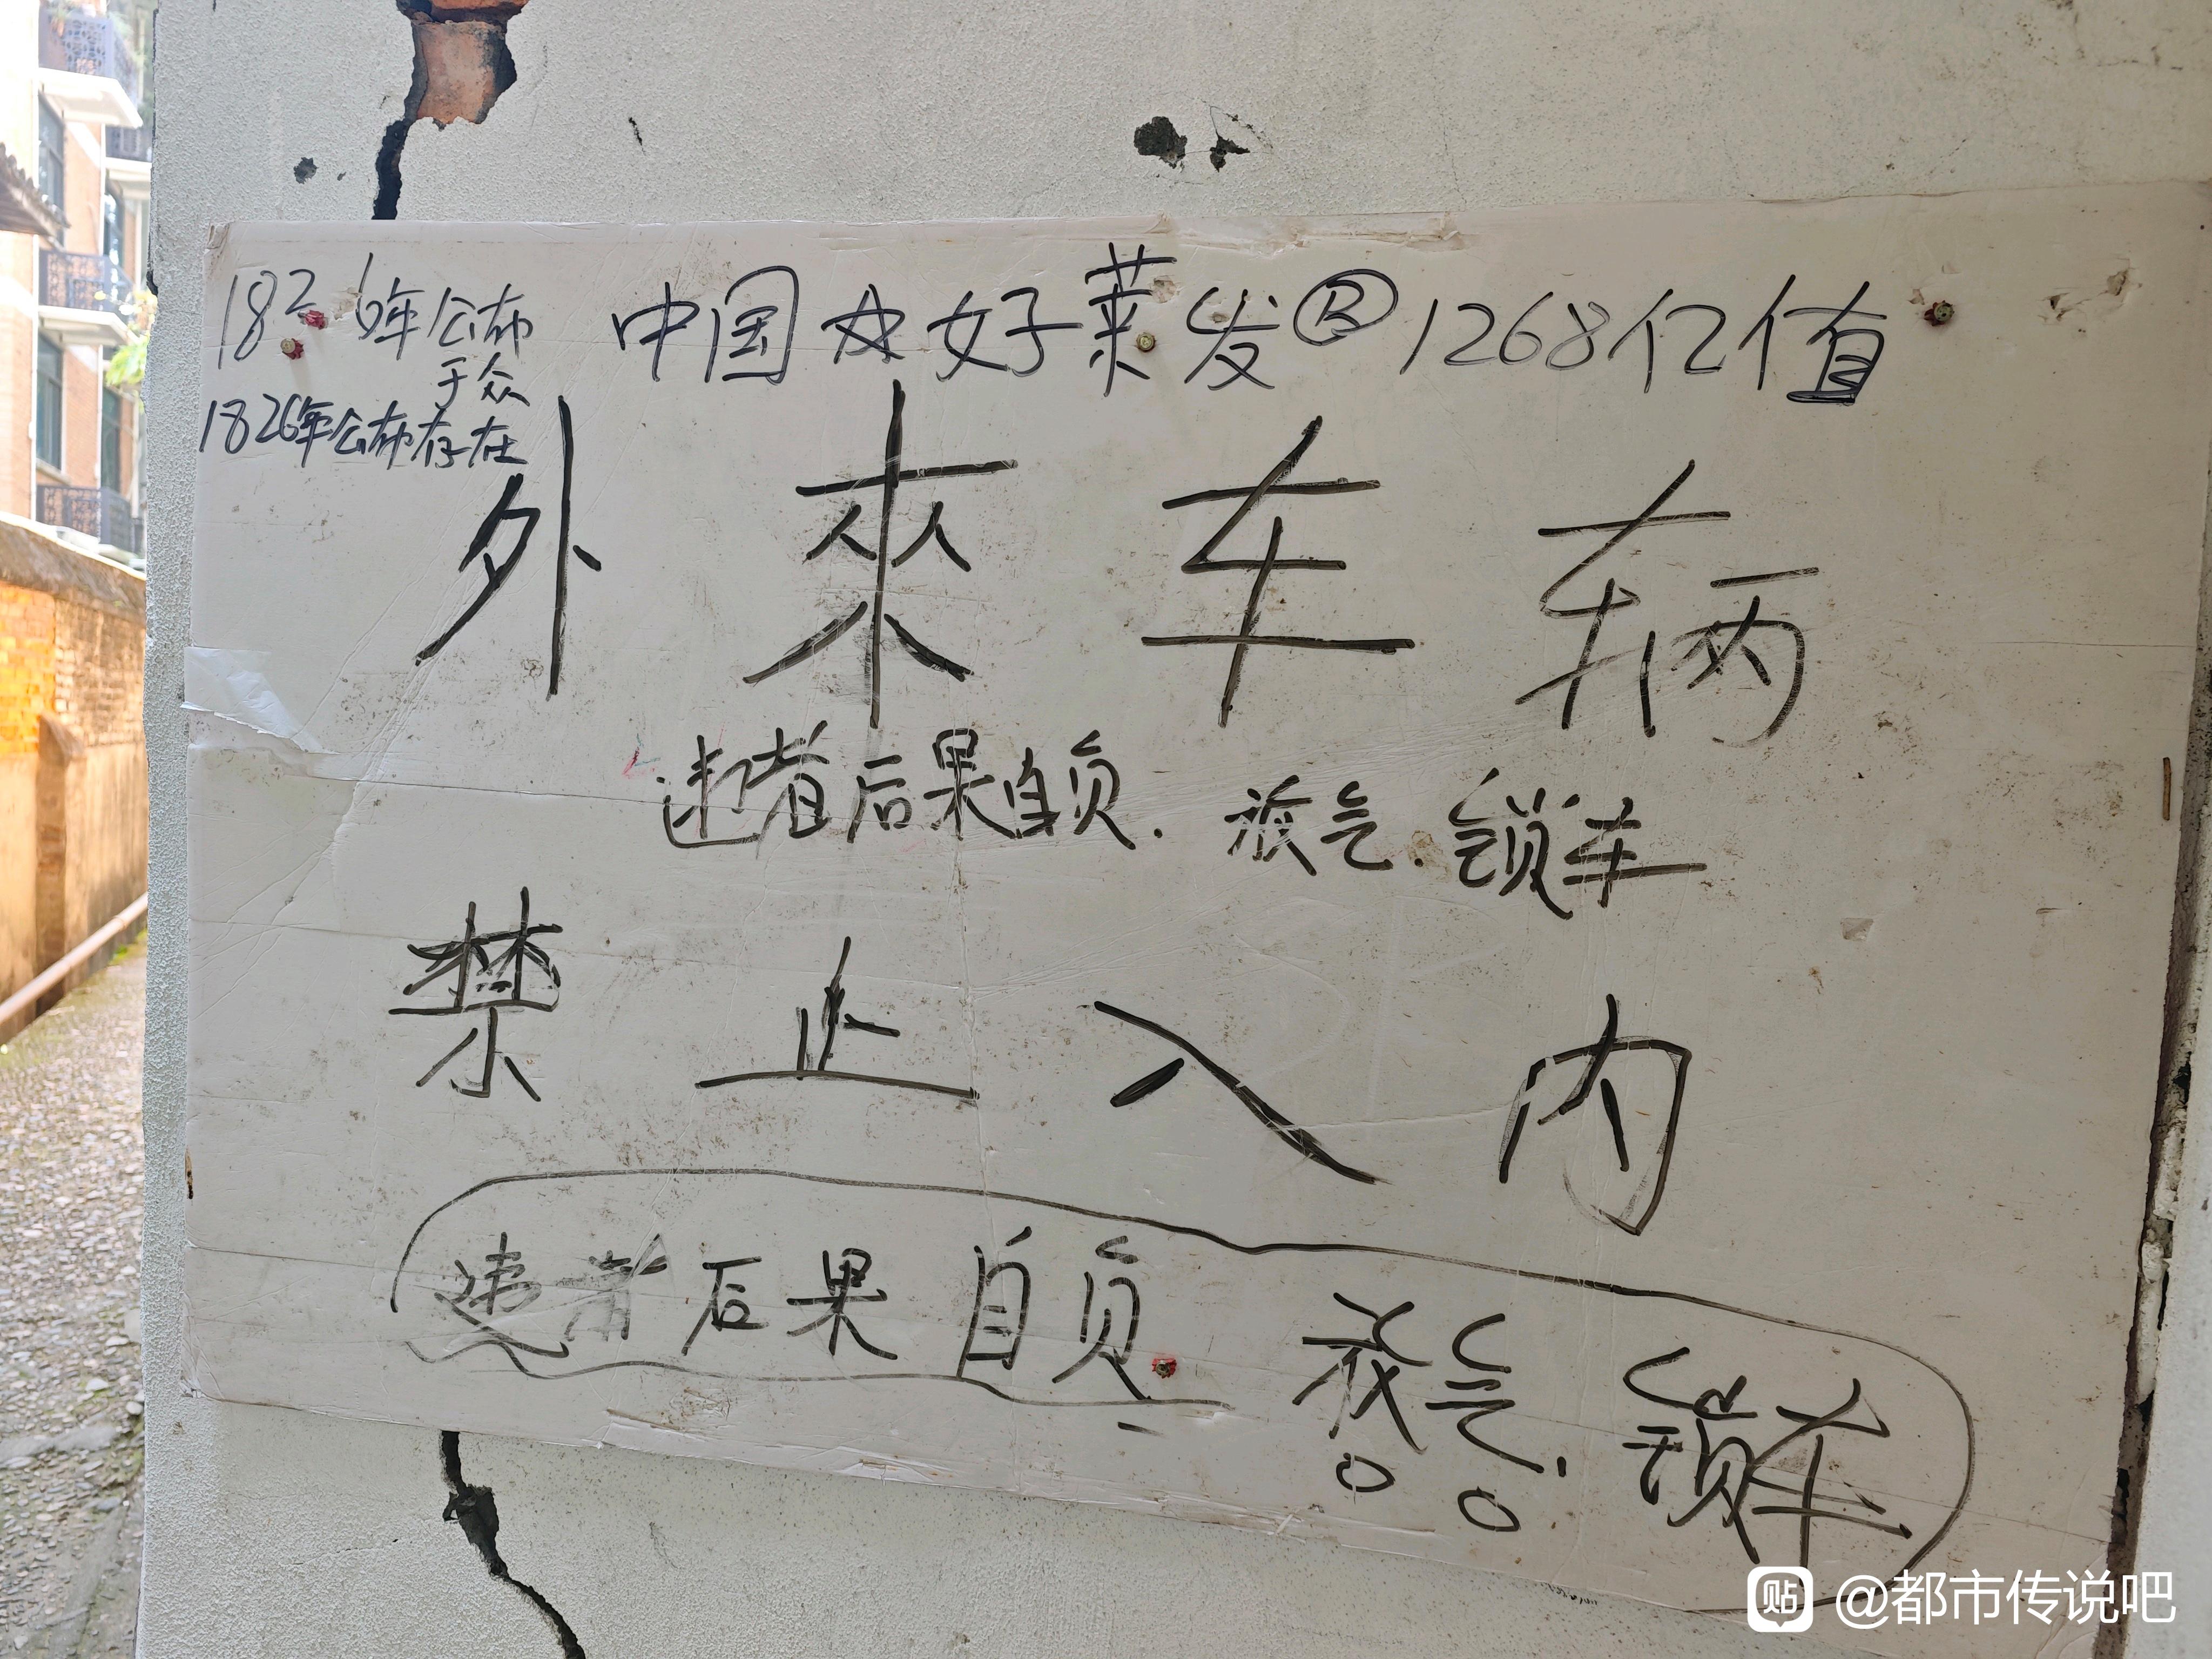 1826年公布
于众
1826年公布存在
中国女好莱发Ⓡ1268亿值
外來车辆
违者后果自负.放气.锁车
禁止入内
违者后果自负.放气.锁车
贴 @都市传说吧